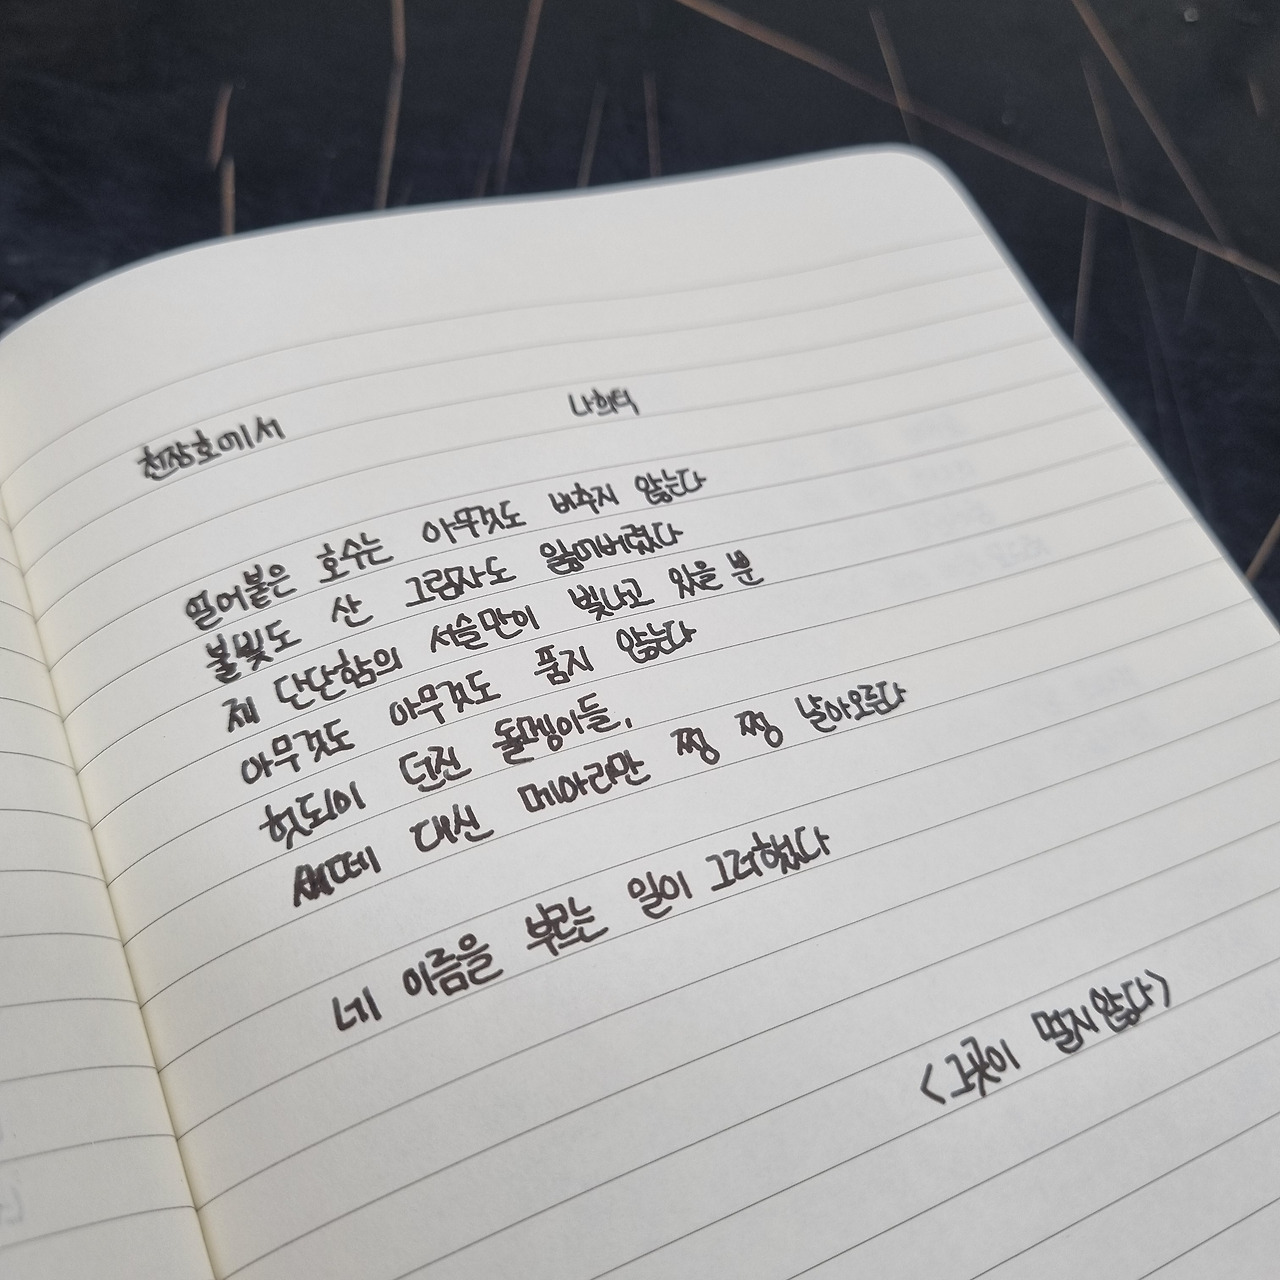 천장호에서 나희덕
얼어붙은 호수는 아무것도 비추지 않는다
불빛도 산 그림자도 잃어버렸다
제 단단함의 서슬만이 빛나고 있을 뿐
아무것도 아무것도 품지 않는다
헛되이 던진 돌멩이들,
새떼 대신 메아리만 쩡 쩡 날아오른다
네 이름을 부르는 일이 그러했다
<그곳이 멀지 않다>